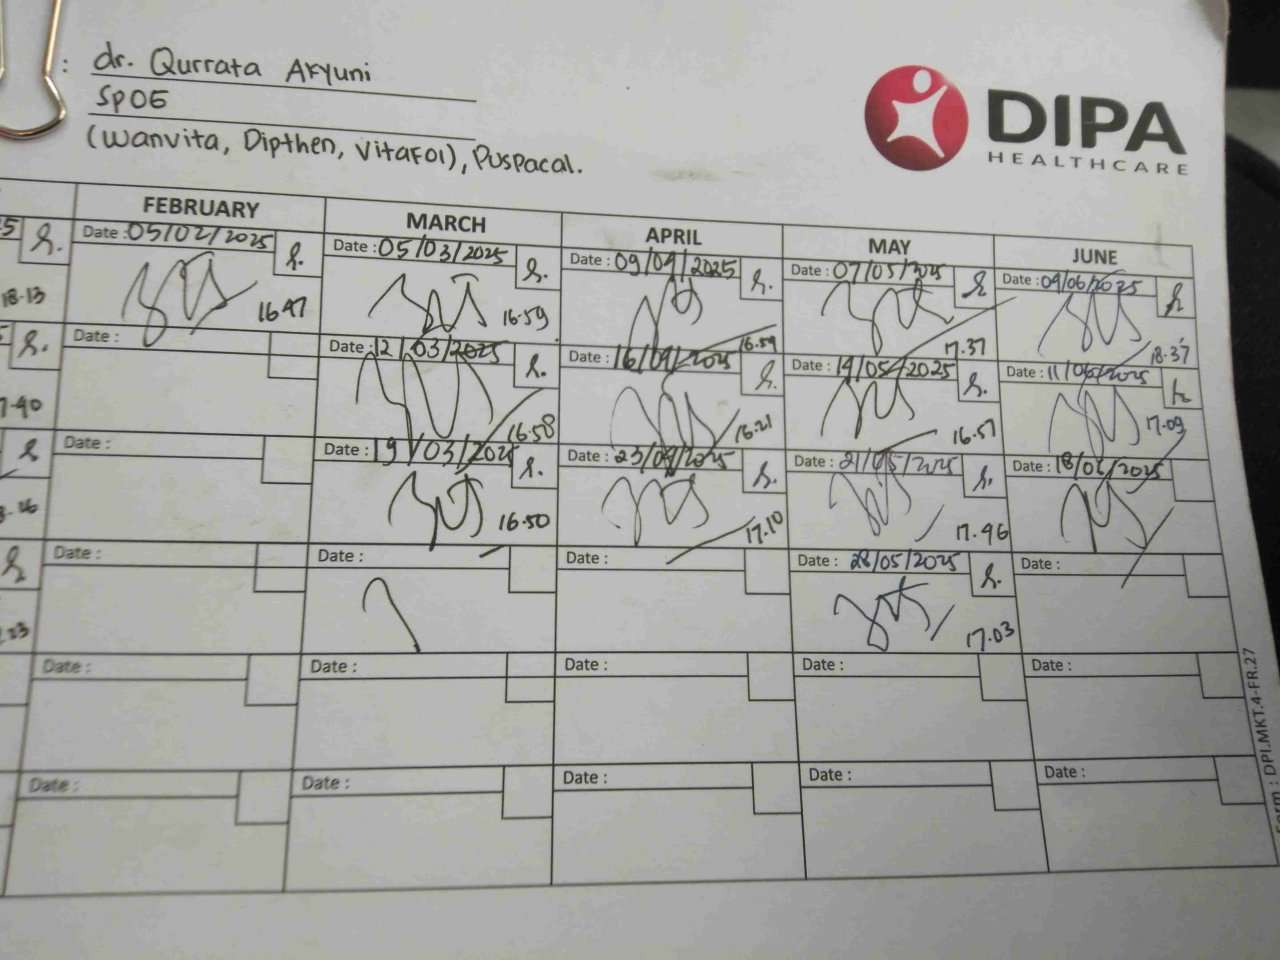 : dr. Qurrata Aryuni
SpOG
(Wanvita, Dipthen, VitaFol), Puspacal.
DIPA
HEALTHCARE
FEBRUARY MARCH APRIL MAY JUNE
Date : 05/02/2025 Date : 05/03/2025 Date : 09/04/2025 Date : 07/05/2025 Date : 04/06/2025
18.13 16.47 16.59 16.59 17.37 18.37
Date : Date : 12/03/2025 Date : 16/04/2025 Date : 14/05/2025 Date : 11/06/2025
16.58 16.21 16.57 17.09
Date : Date : 19/03/2025 Date : 23/04/2025 Date : 21/05/2025 Date : 18/06/2025
16.50 17.10 17.46
Date : Date : Date : Date : 28/05/2025 Date :
17.03
Date : Date : Date : Date : Date :
Date : Date : Date : Date : Date :
Form : DPI.MKT.4-FR.27